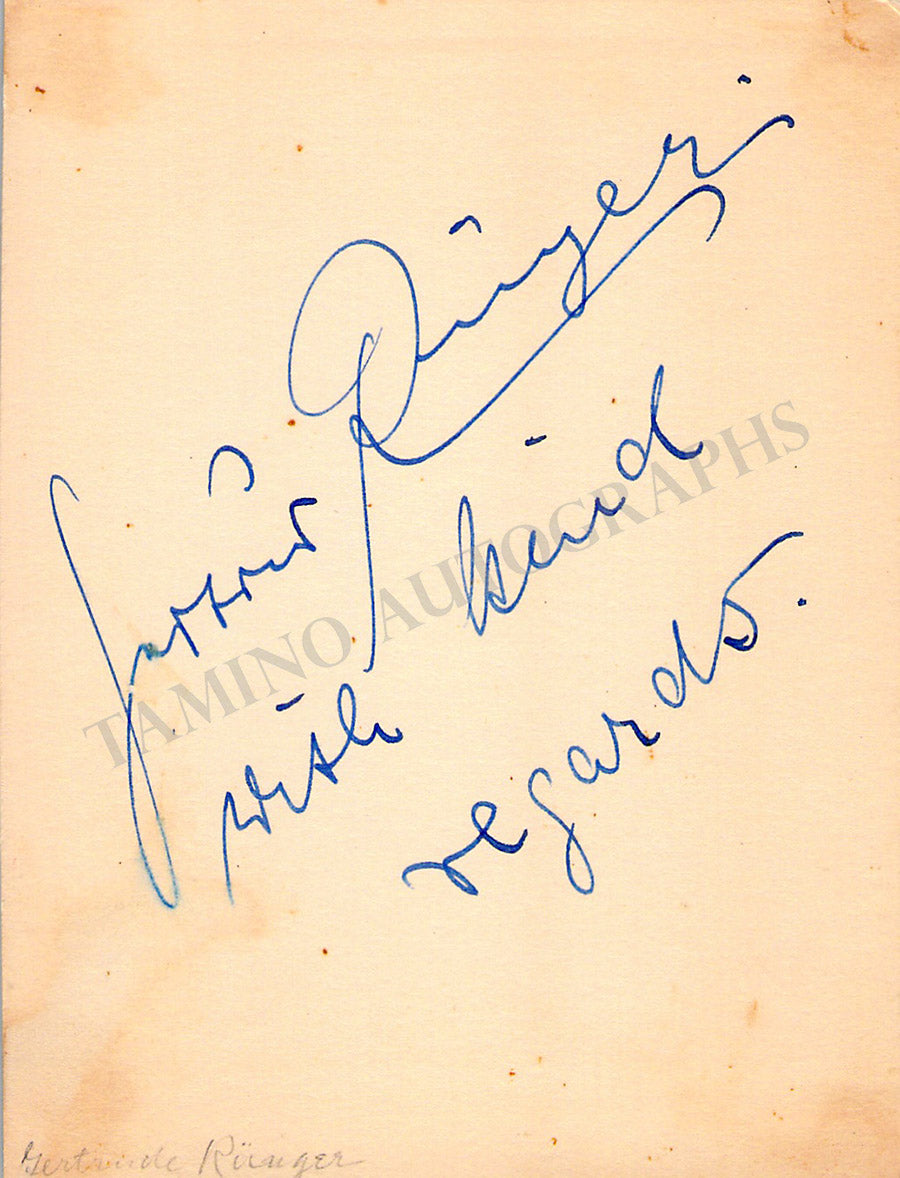 Gertrud Rünger.
with kind
regards.
TAMINO AUTOGRAPHS
Gertrude Rünger